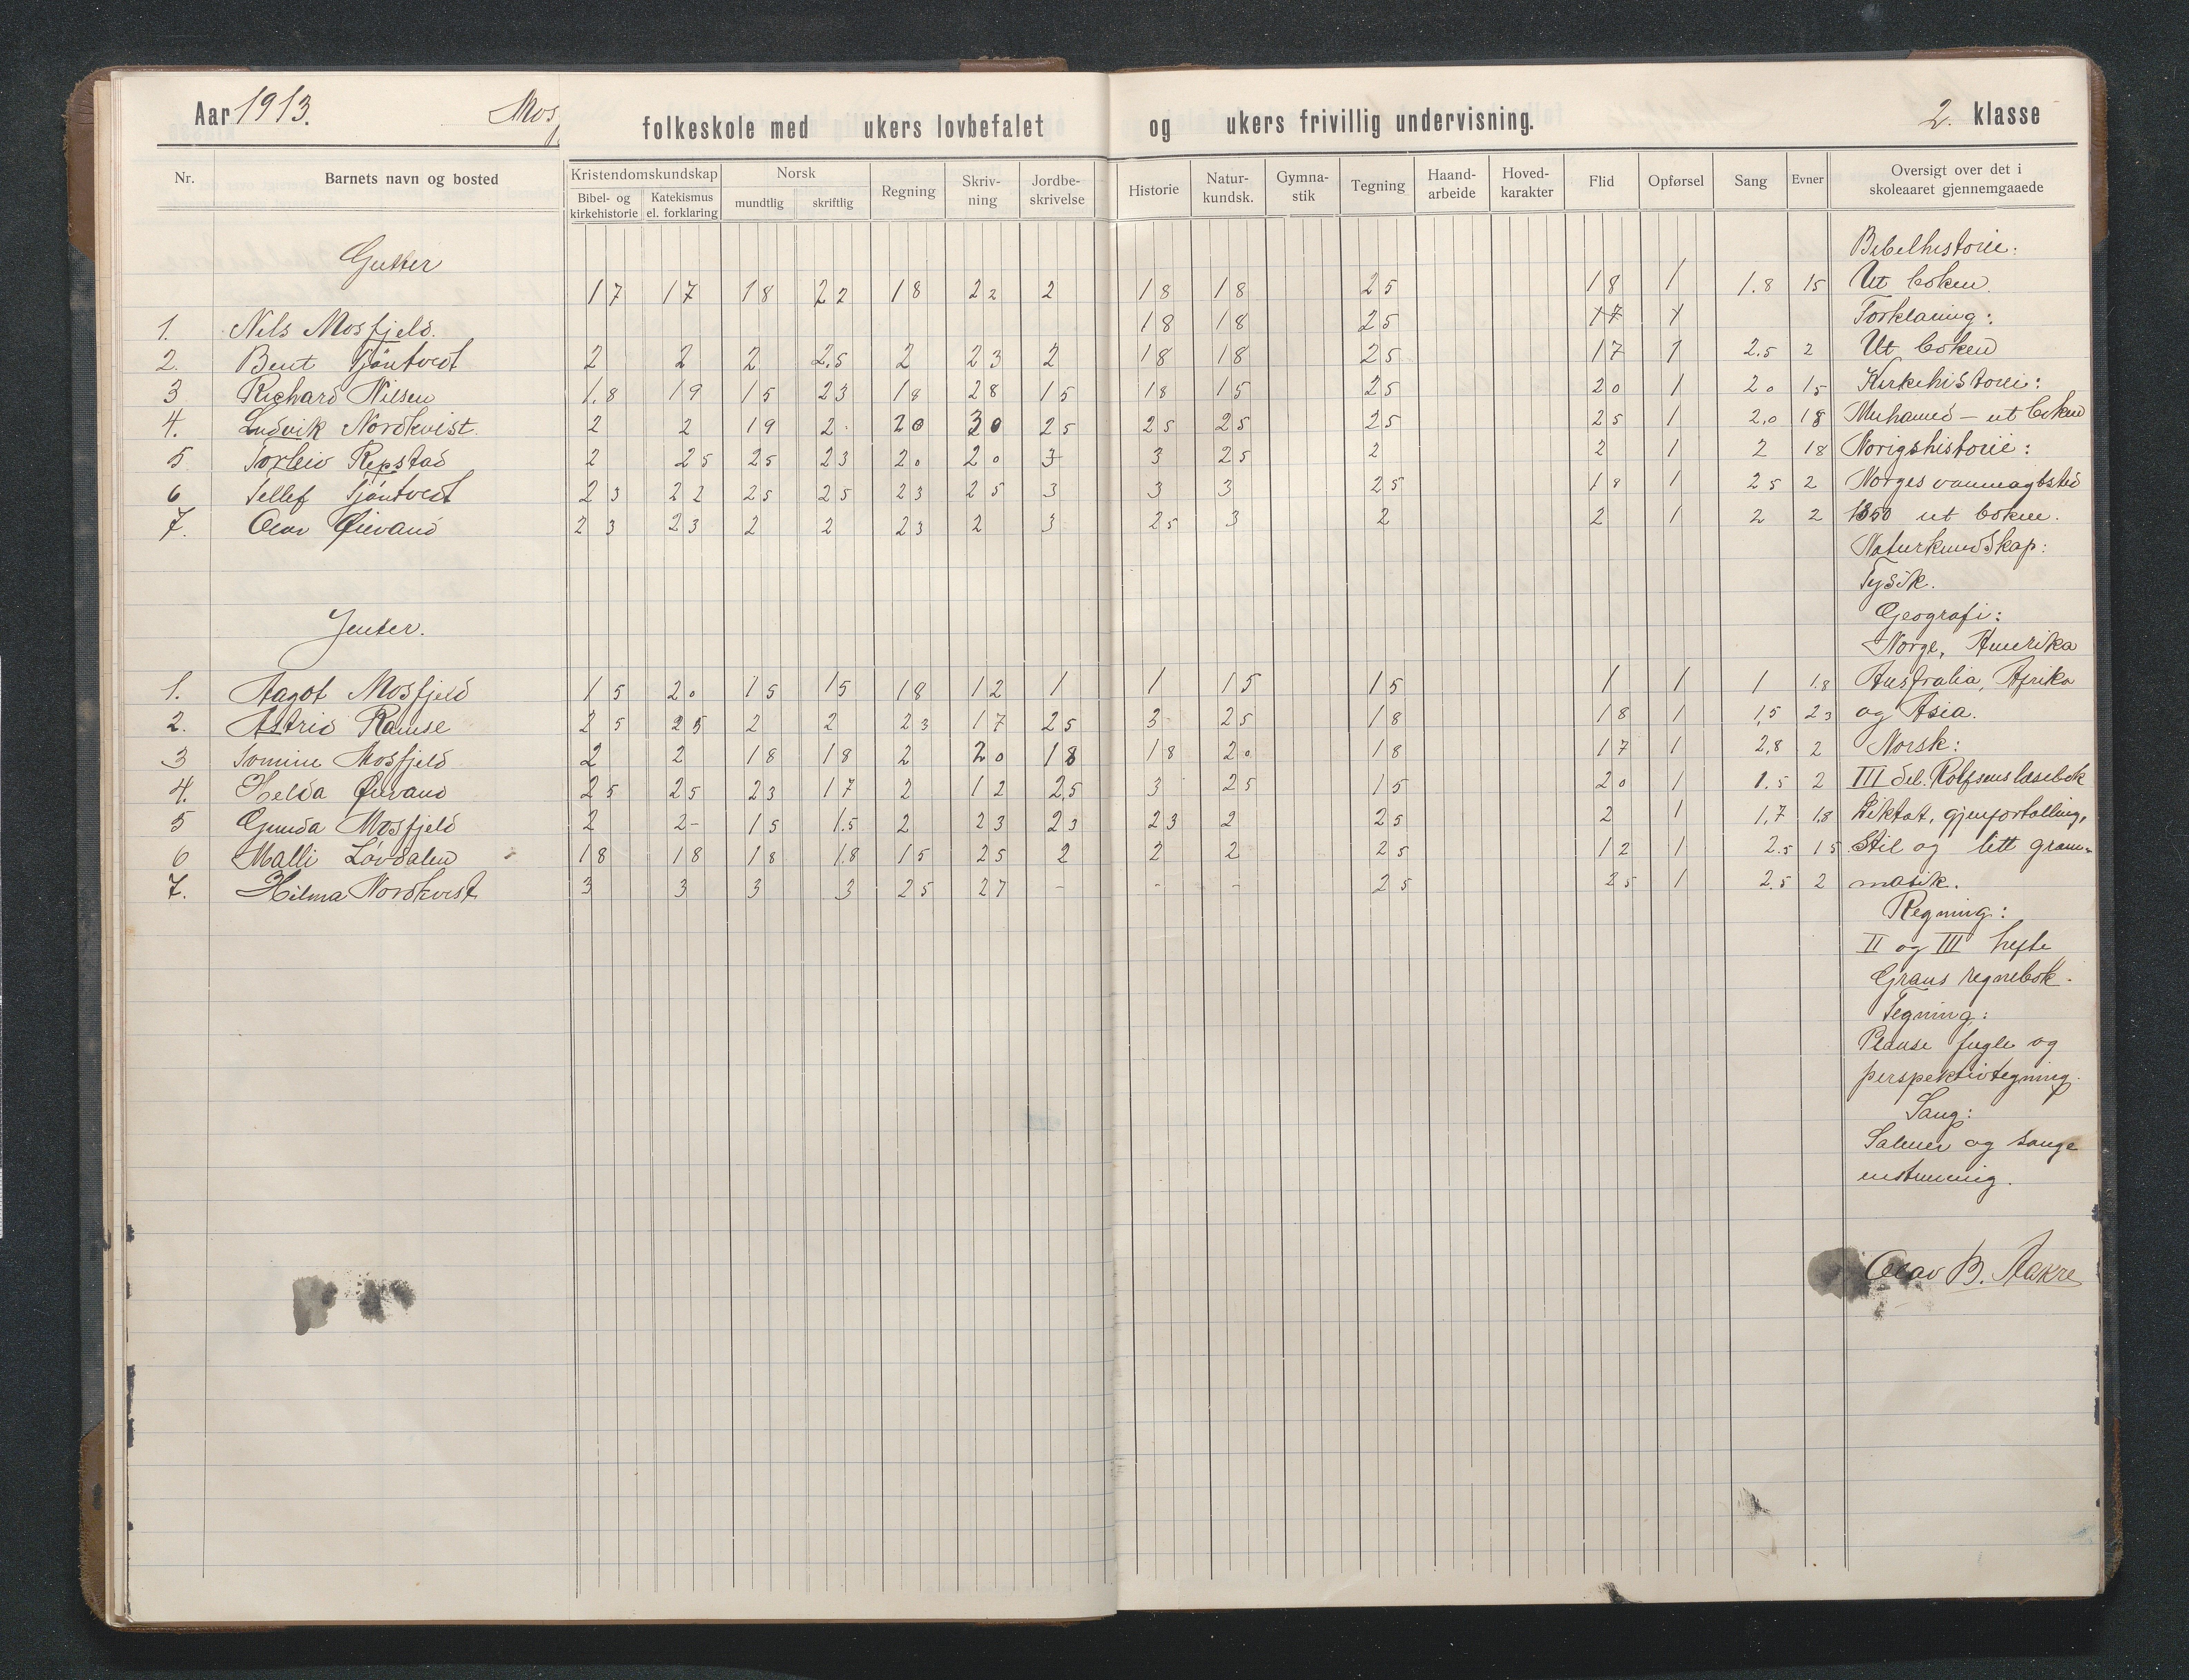 Aar 1913. Mos folkeskole med ukers lovbefalet og ukers frivillig undervisning. 2. klasse
Nr. Barnets navn og bosted Kristendomskundskap Norsk Regning Skriv-ning Jordbe-skrivelse Historie Natur-kundsk. Gymna-stik Tegning Haand-arbeide Hoved-karakter Flid Opførsel Sang Evner Oversigt over det i skoleaaret gjennemgaaede
Bibel- og kirkehistorie Katekismus el. forklaring mundtlig skriftlig
Gutter
17 17 18 22 18 22 2 18 18 25 18 1 1.8 15
1. Nils Mosfjeld. 18 18 25 17 1
2. Bent Tjöntvedt 2 2 2 2.5 2 23 2 18 18 25 17 1 2.5 2
3 Richard Nilsen 1.8 19 15 23 18 28 15 18 15 25 20 1 20 15
4. Ludvik Nordkvist. 2 2 19 2 20 30 25 25 25 25 25 1 2,0 18
5 Torleiv Repstad 2 25 25 23 20 20 3 3 25 2 2 1 2 18
6 Tellef Tjöntvedt 23 22 25 25 23 25 3 3 3 25 18 1 25 2
7. Olav Øievand 23 23 2 2 23 2 3 25 3 2 2 1 2 2
Jenter.
1. Aagot Mosfjeld 15 20 15 15 18 12 1 1 15 15 1 1 1 1.8
2. Astrid Ramse 25 25 2 2 23 17 25 3 25 18 18 1 1,5 23
3 Tomine Mosfjeld 2 2 18 18 2 20 18 18 20 18 17 1 2,8 2
4. Helda Øievand 25 25 23 17 2 12 2,5 3 25 15 20 1 1.5 2
5 Gunda Mosfjeld 2 2- 15 1.5 2 23 23 23 2 25 2 1 1,7 1.8
6 Malli Løvdalen 18 18 18 1.8 15 25 2 2 2 25 12 1 2.5 15
7. Hilma Nordkvist 3 3 3 3 25 27 - - - 25 25 1 2.5 2
Bibelhistorie:
Ut boken.
Forklaring:
Ut boken
Kirkehistorie:
Muhamed - ut boken
Norigshistorie:
Norges vanmagtstid
1350 ut boken.
Naturkundskap:
Fysik.
Geografi:
Norge, Amerika
Australia, Afrika
og Asia.
Norsk:
III del. Rolfsens læsebok
Diktat, gjenfortelling,
Stil og litt gram-
matik.
Regning:
II og III hefte
Grans regnebok.
Tegning:
fugle og
perspektivtegning.
Sang:
Salmer og sange
enstemmig.
Olav B. Aakre